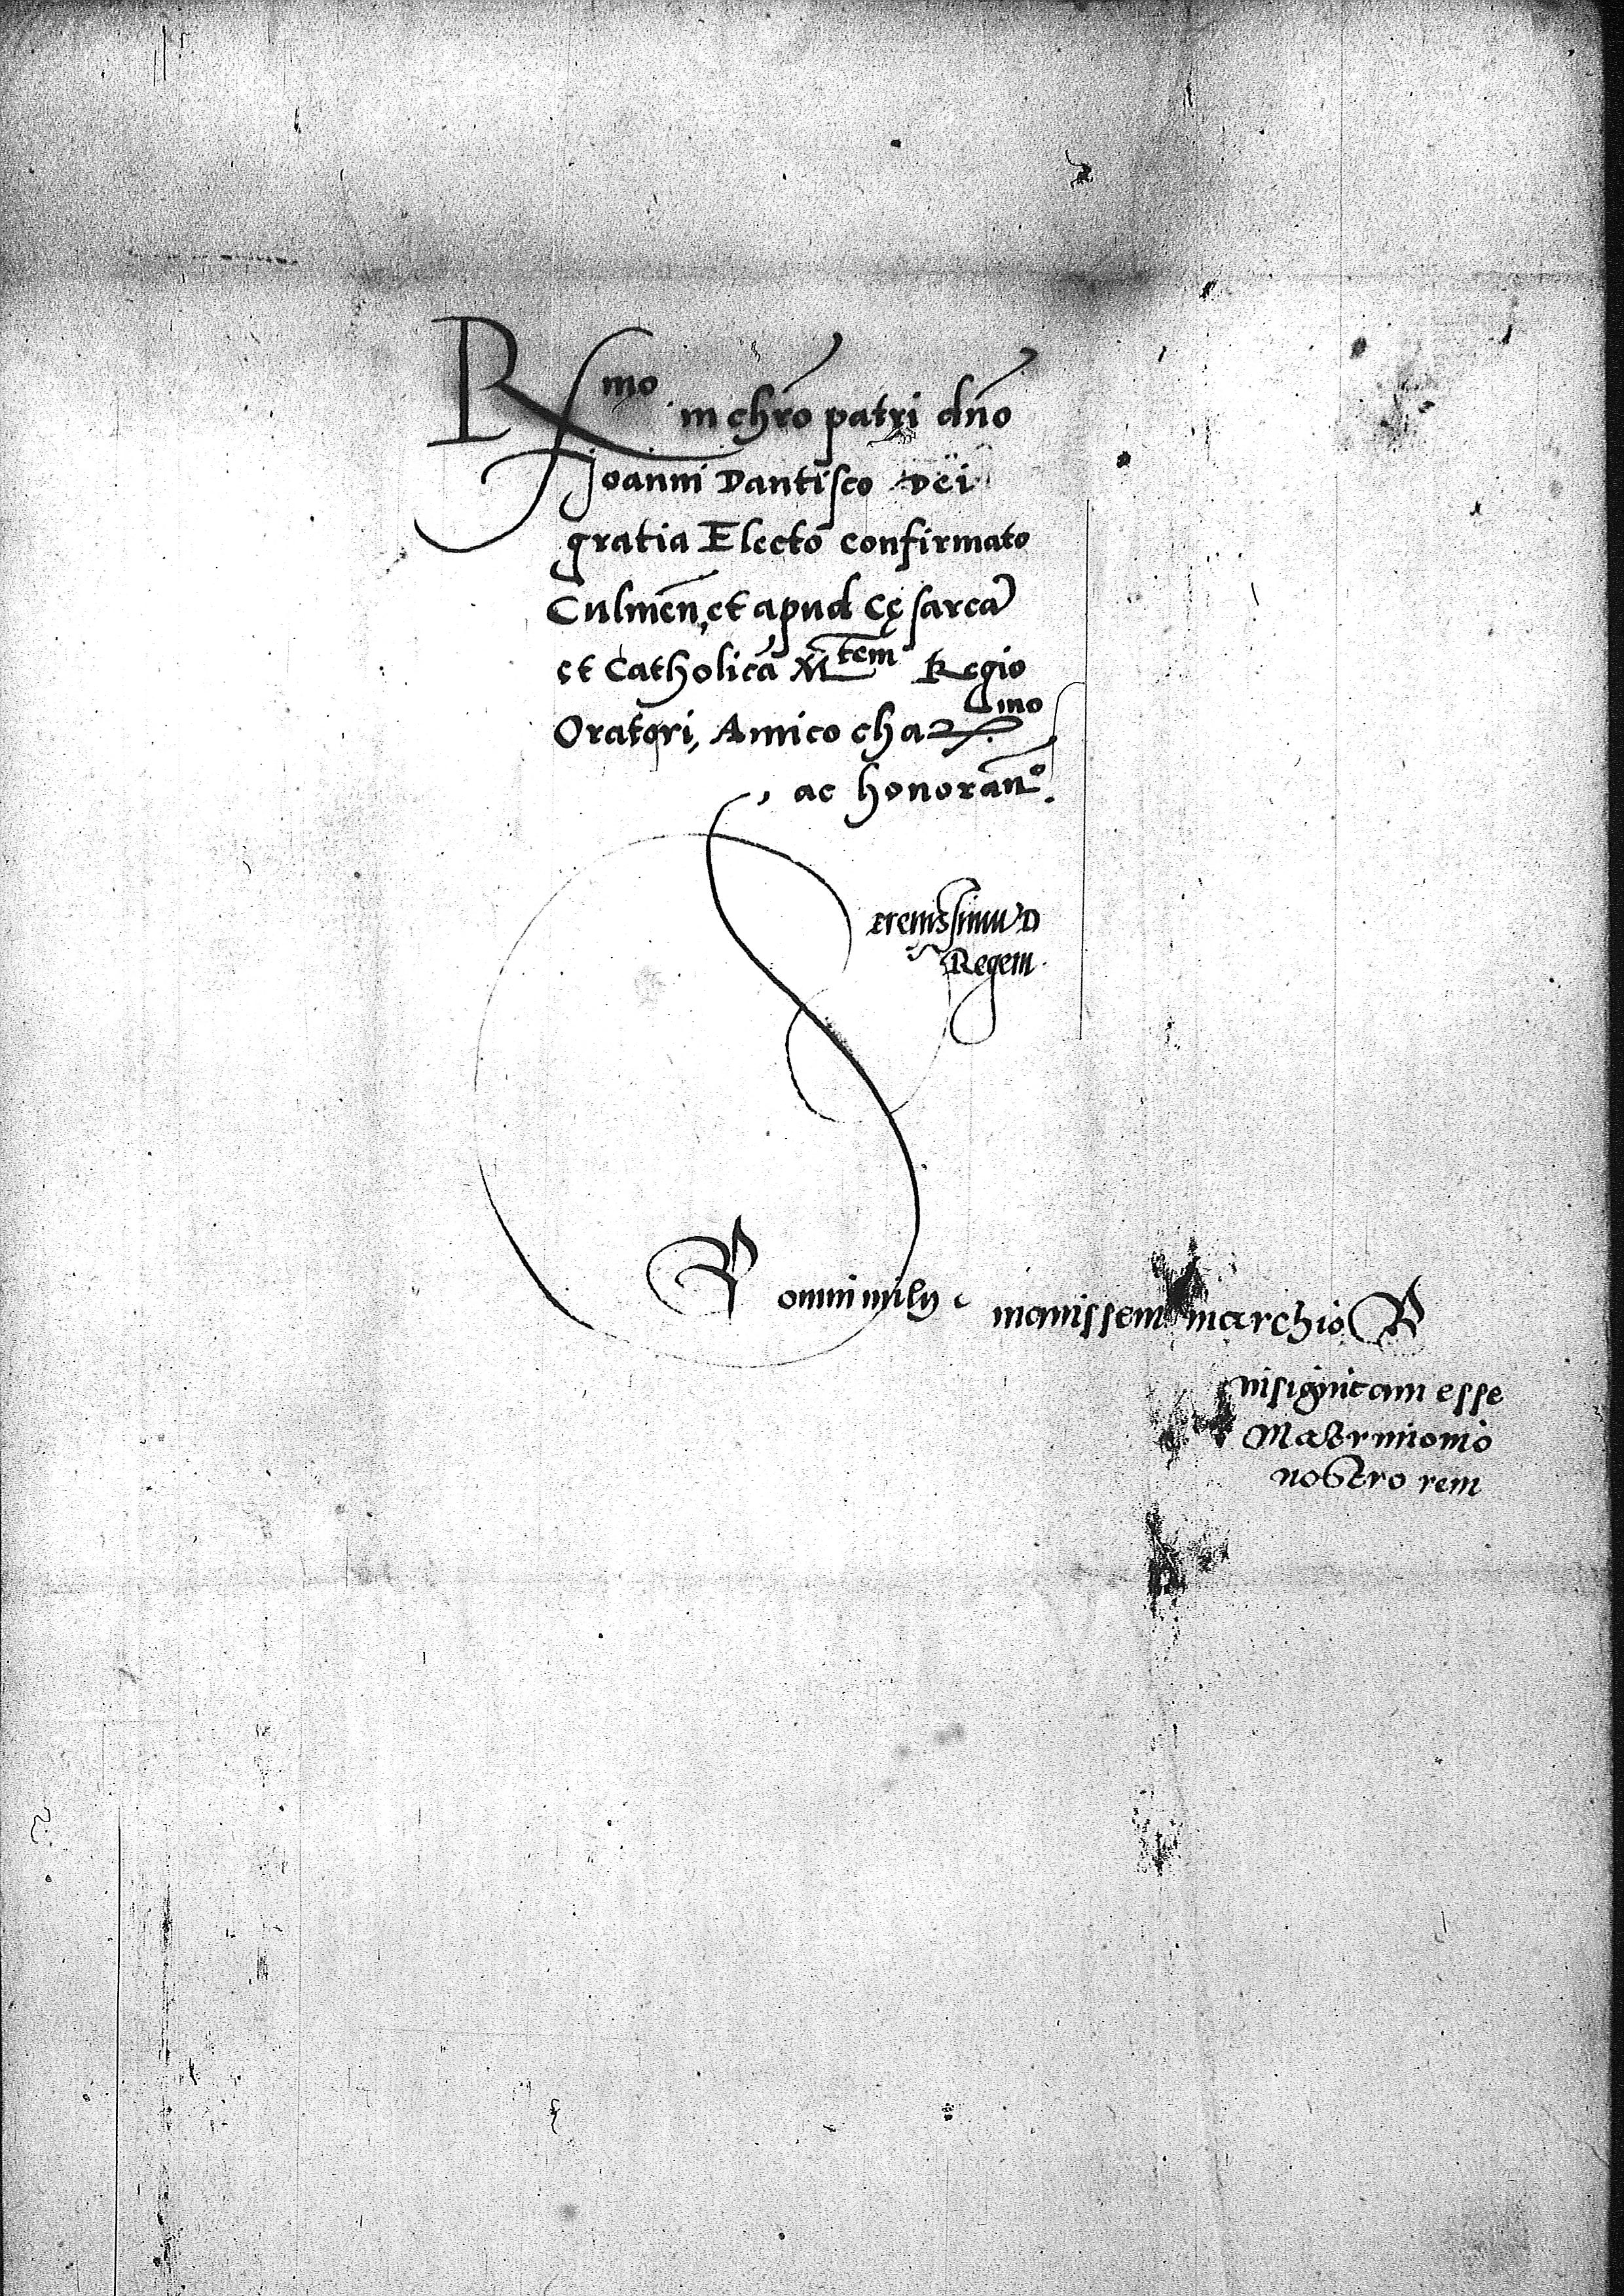 Rmo in chro patri dno
Joanni Dantisco Dei
gratia Electo confirmato
Culmen, et apud Cęsareā
et Catholicā Mtem Regio
Oratori, Amico charmo
ac honoran°.
Serenissimū D
Regem
manissem marchio
insignitam esse
Matrimonio
nostro rem